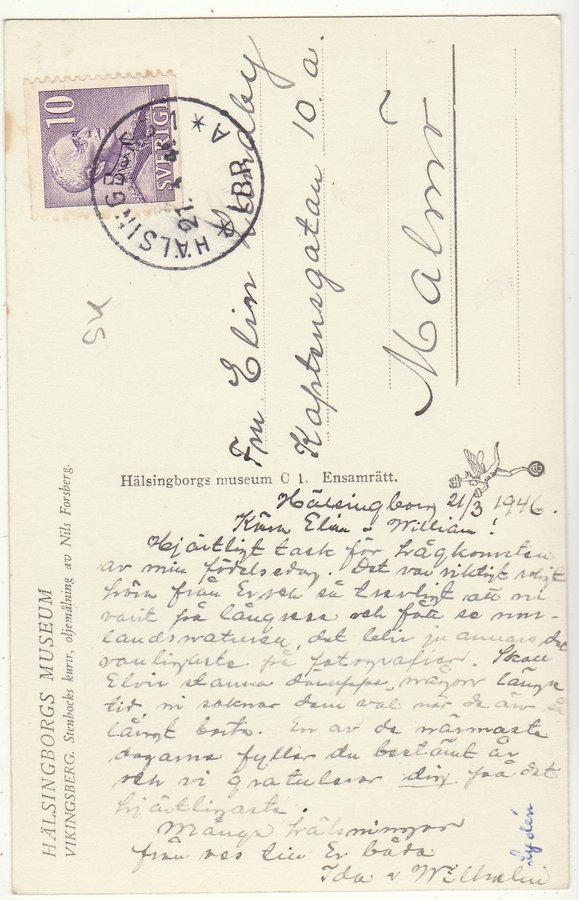 10
SVERIGE
HÄLSINGBORG
LBR A
21
Fru Elin Lundby
Kaptensgatan 10 a.
Malmö
Hälsingborgs museum C 1. Ensamrätt.
HÄLSINGBORGS MUSEUM
VIKINGSBERG. Stenbocks kurir, oljemålning av Nils Forsberg.
Hälsingborg 21/3 1946.
Kära Elin o William!
Hjärtligt tack för hågkomsten
av min födelsedag. Det var riktigt roligt
höra från Er och så trevligt att ni
varit på långresa och fått se norr-
landsnaturen, det blir ju annars det
vanligaste på fotografier. Skall
Elvir stanna däruppe någon längre
tid, ni saknar dem väl när de är så
långt borta. En av de närmaste
dagarna fyller du bestämt år
och vi gratulerar dig på det
hjärtligaste.
Många hälsningar
från oss till Er båda
Ida o Wilhelm
Lydén